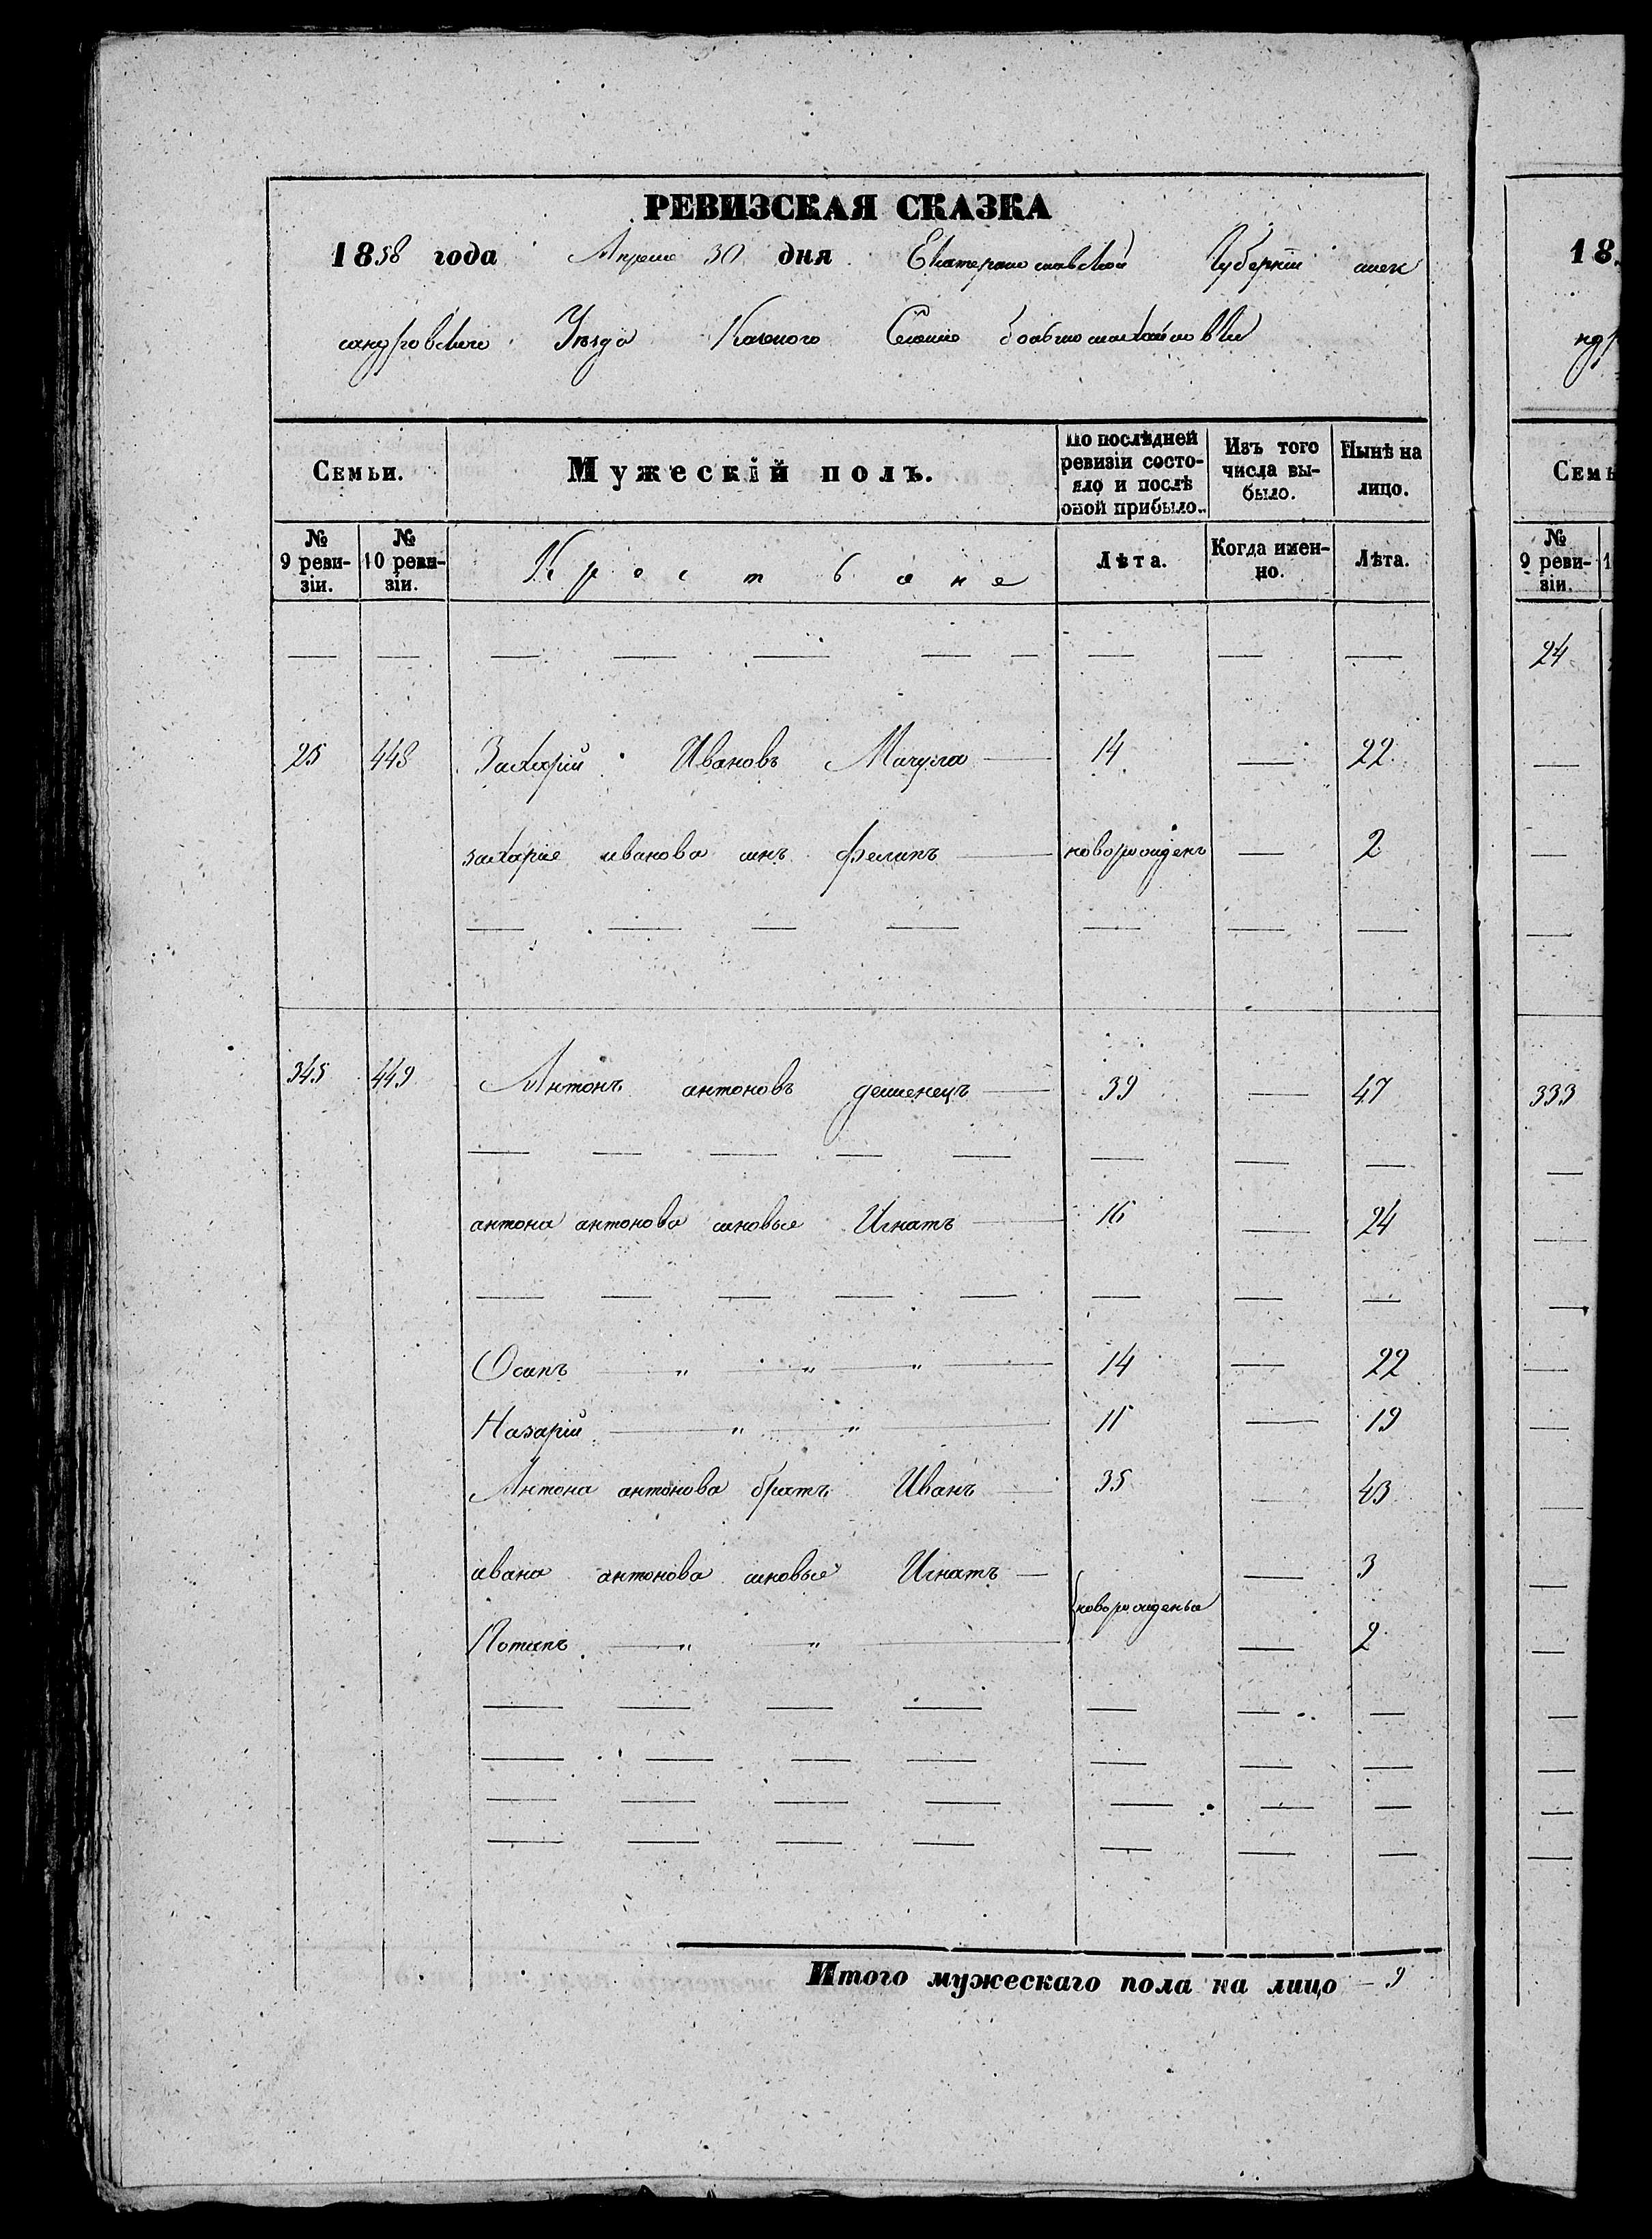 РЕВИЗСКАЯ СКАЗКА
1858 года Апреля 30 дня Екатеринославской Губернiи алек
сандровского Уезда Казеного Селенiя большомихайловки
Семьи. Мужескiй полъ. По послѣдней ревизiи состояло и послѣ оной прибыло. Изъ того числа выбыло. Нынѣ на лицо.
№ 9 ревизiи. № 10 ревизiи. Крестьяне Лѣта. Когда именно. Лѣта.
25 448 Захарiй Ивановъ Мачула 14 — 22
захарiе иванова синъ Филипъ новорожденъ — 2
345 449 Антонъ антоновъ 39 — 47
антона антонова синовье Игнатъ 16 — 24
Осипъ — „ — „ — „ — 14 — 22
Назарiй — „ — „ — 11 — 19
Антона антонова братъ Иванъ 35 — 43
ивана антонова синовье Игнатъ — 3
новорожденые
Потапъ — „ — „ — 2
Итого мужескаго пола на лицо — 9
18
ндр
Семь
№ 9 ревизiи. 1
24
333